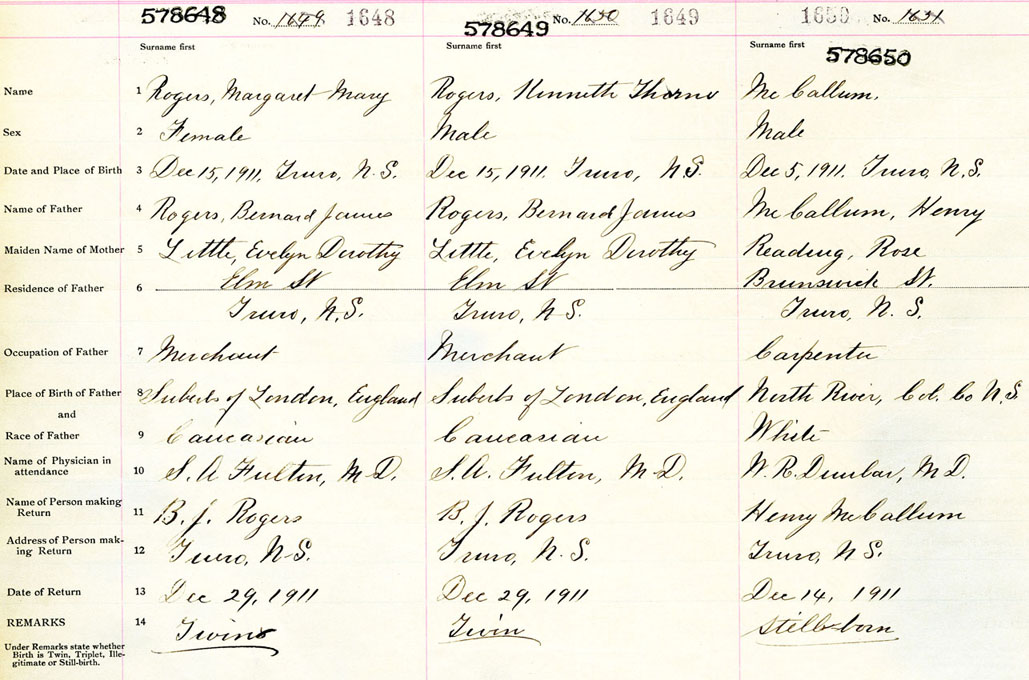 578648 No. 1649 1648 578649 No. 1650 1649 1650 No. 1651
Surname first Surname first Surname first 578650
Name 1 Rogers, Margaret Mary Rogers, Kenneth Thorne Mc Callum,
Sex 2 Female Male Male
Date and Place of Birth 3 Dec 15, 1911. Truro, N.S. Dec 15, 1911. Truro, N.S. Dec 5, 1911. Truro, N.S.
Name of Father 4 Rogers, Bernard James Rogers, Bernard James Mc Callum, Henry
Maiden Name of Mother 5 Little, Evelyn Dorothy Little, Evelyn Dorothy Reading, Rose
Residence of Father 6 Elm St Elm St Brunswick St.
Truro, N.S. Truro, N.S. Truro, N.S.
Occupation of Father 7 Merchant Merchant Carpenter
Place of Birth of Father 8 Suberbs of London, England Suberbs of London, England North River, Col. Co N.S
and
Race of Father 9 Caucasian Caucasian White
Name of Physician in
attendance 10 S. A Fulton, M-D. S. A. Fulton, M-D. W. R. Dunbar, M D.
Name of Person making
Return 11 B. J. Rogers B. J. Rogers Henry McCallum
Address of Person mak-
ing Return 12 Truro, N-S. Truro, N.S. Truro, N S.
Date of Return 13 Dec 29, 1911 Dec 29, 1911 Dec 14, 1911
REMARKS 14 Twins Twin Still-born
Under Remarks state whether
Birth is Twin, Triplet, Ille-
gitimate or Still-birth.